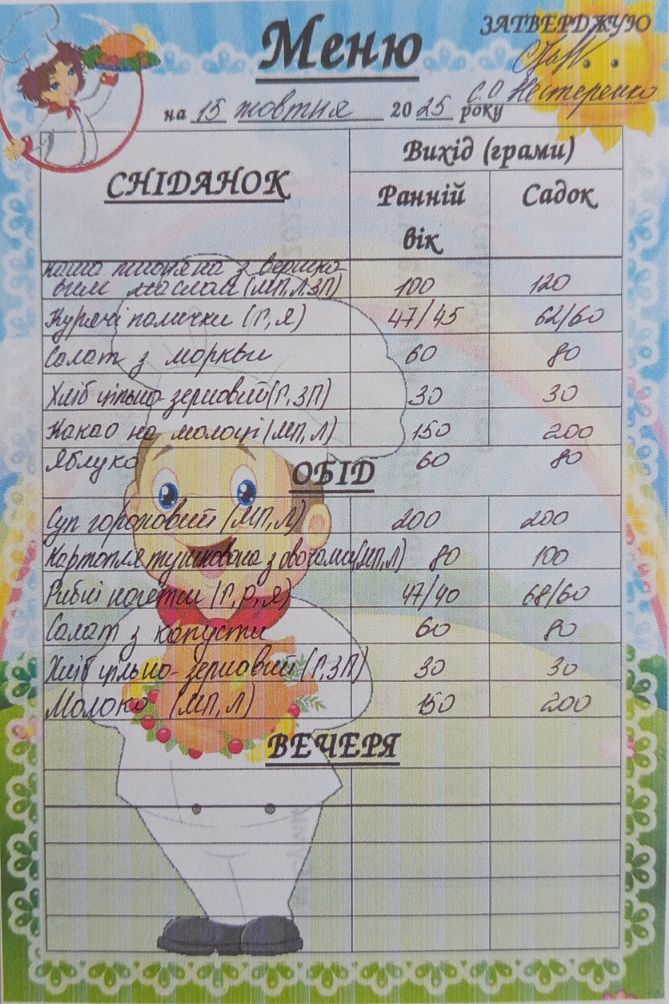 Меню
ЗАТВЕРДЖУЮ
С.О. Нестеренко
на 15 жовтня 2025 року
СНІДАНОК
Вихід (грами)
Ранній вік
Садок
каша пшоняна з вершко-
вим маслом (МП,Л,ЗП) 100 120
Курячі палички (Г,Я) 47/45 62/60
Салат з моркви 60 80
Хліб цільно-зерновий (Г,ЗП) 30 30
Какао на молоці (МП,Л) 150 200
Яблуко 60 80
ОБІД
Суп гороховий (МП,Л) 200 200
Картопля тушкована з овочами (МП,Л) 80 100
Рибні (Г,Р,Я) 47/40 68/60
Салат з капусти 60 80
Хліб цільно-зерновий (Г,ЗП) 30 30
Молоко (МП,Л) 150 200
ВЕЧЕРЯ